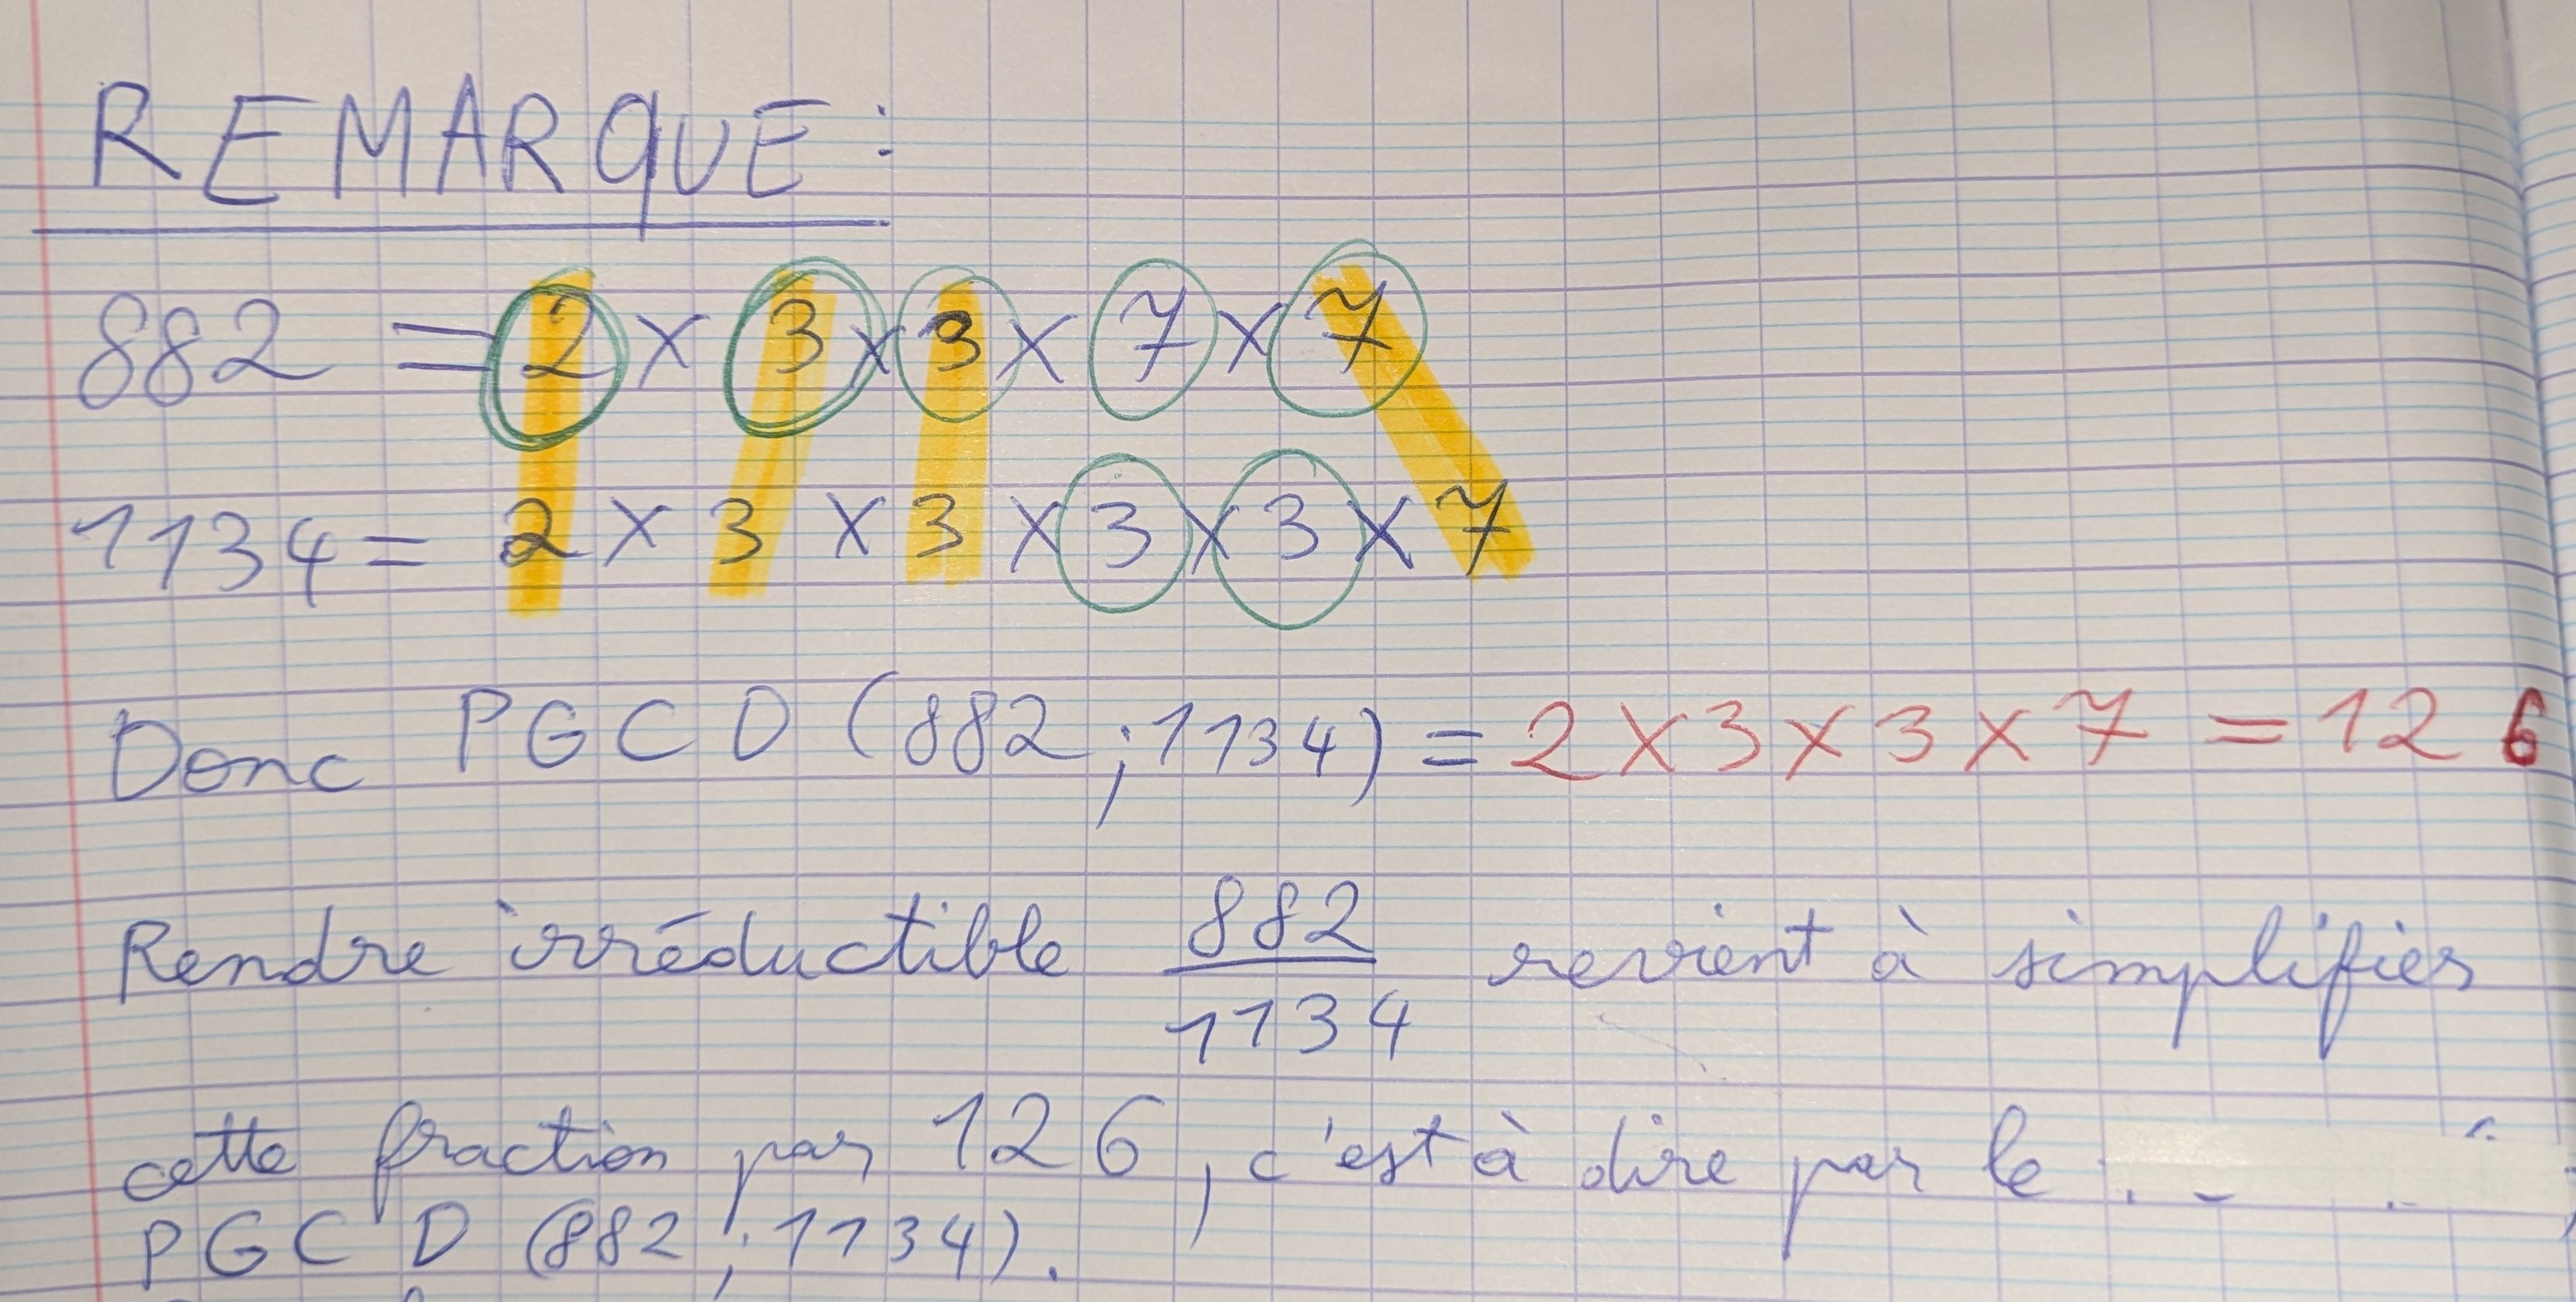 REMARQUE:
882 = 2 × 3 × 3 × 7 × 7
1134 = 2 × 3 × 3 × 3 × 3 × 7
Donc PGCD (882 ; 1134) = 2 × 3 × 3 × 7 = 126
Rendre irréductible 882/1134 revient à simplifier
cette fraction par 126, c'est à dire par le
PGCD (882 ; 1134).